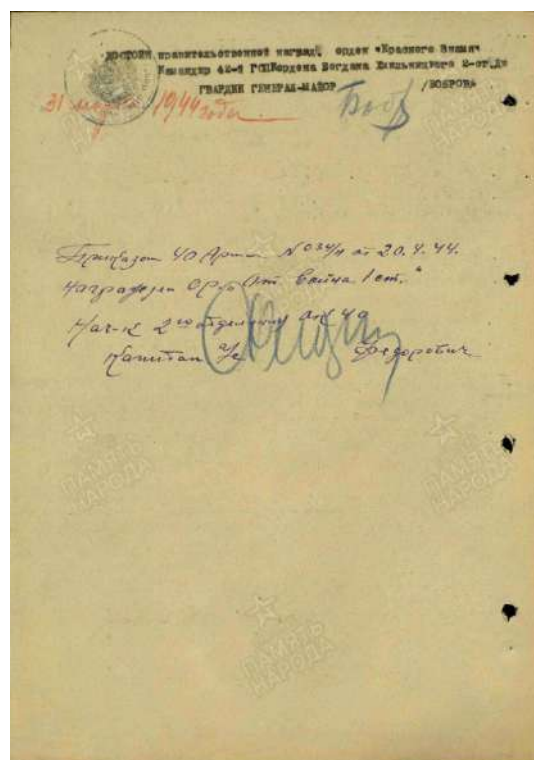 ДОСТОИН правительственной наград, орден "Красного Знамя"
Командир 42-й ГСПКордена Богдана Хмельницкого 2-ст.Ди
ГВАРДИИ ГЕНЕРАЛ-МАЙОР /БОБРОВ
31 марта 1944 года
Боб
Приказом 40 Армии № 034/н от 20.4.44.
Награжден Орд. "От. война 1 ст."
Нач-к 2го отделения ок 40
Капитан а/с Федорович
ПАМЯТЬ НАРОДА
ПАМЯТЬ НАРОДА
ПАМЯТЬ НАРОДА
ПАМЯТЬ НАРОДА